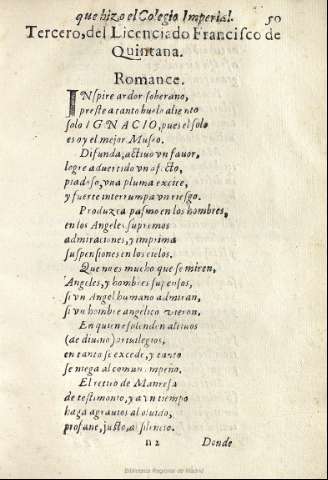 que hizo el Colegio Imperial. 50
Tercero, del Licenciado Francisco de
Quintana.
Romance.
INspire ardor soberano,
preste a tanto buelo aliento
solo IGNACIO, pues el solo
es oy el mejor Museo.
Difunda, activo un favor,
logre advertido un afecto,
piadoso, una pluma excite,
y fuerte interrumpa un riesgo.
Produzca pasmo en los hombres,
en los Angeles supremos
admiraciones, y imprima
suspensiones en los cielos.
Que no es mucho que se miren,
Angeles, y hombres suspensos,
si un Angel humano admiran,
si un hombre angelico vieron.
En quien esplenden altivos
(de divino) privilegios,
en tanto se excede, y tanto
se niega al comun empeño.
El retiro de Manresa
dè testimonio, y a un tiempo
haga agravios al olvido,
profane, justo, al silencio.
n2 Donde
Biblioteca Regional de Madrid